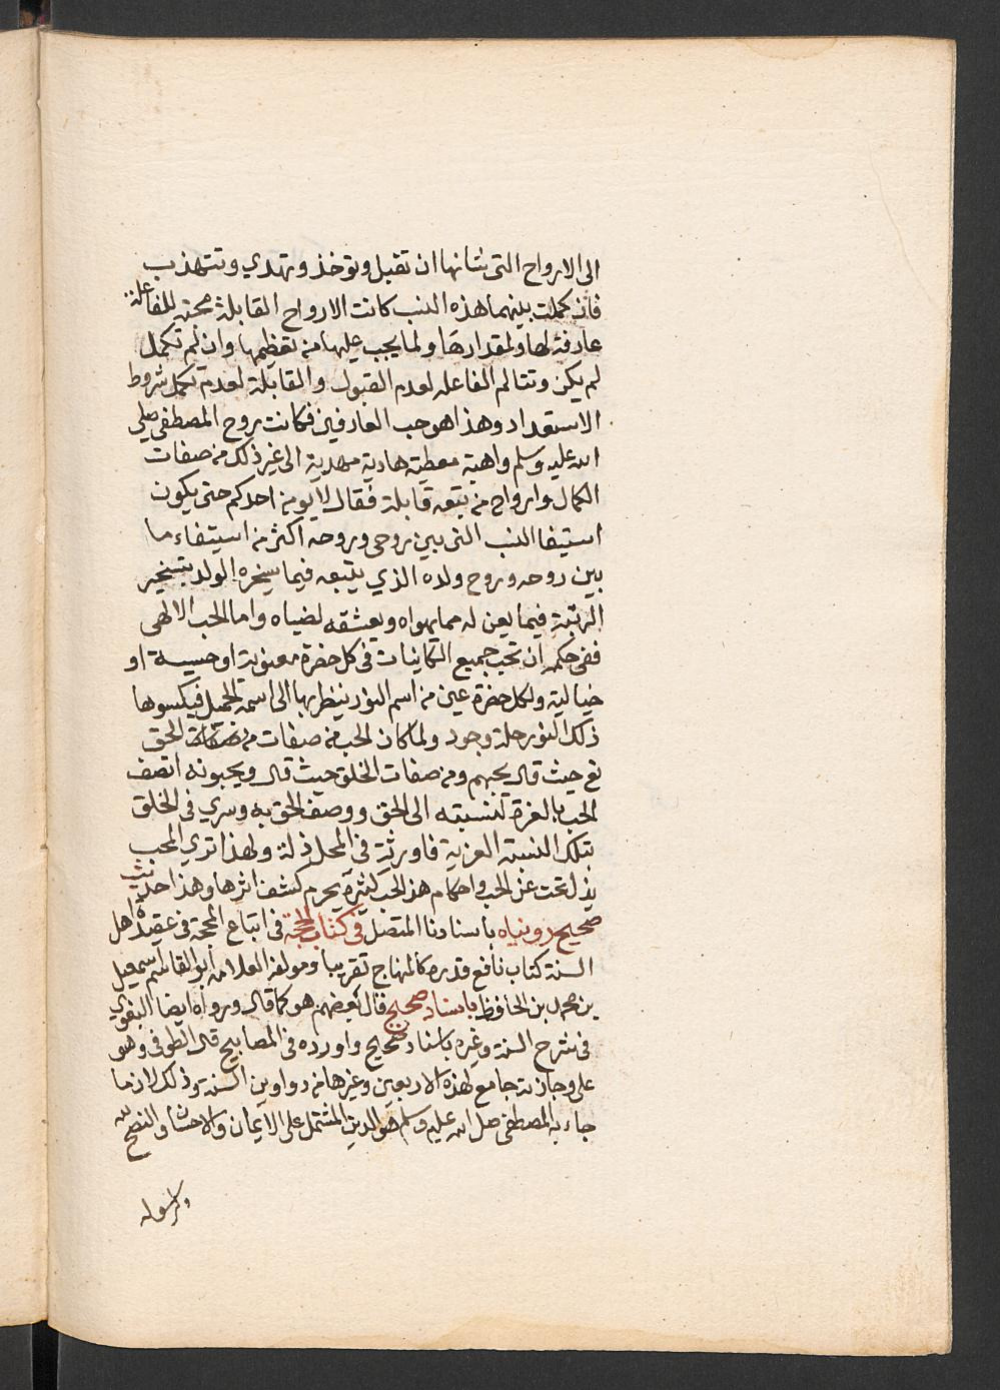 الى الارواح التى شانها ان تقبل وتوخذ وتهدي وتتهذب
فان كملت بينهما هذه النسب كانت الارواح القابلة محبه للفاعلة
عارفة لها ولمقدارها ولما يجب عليها من تعظيمها وان لم تكمل
لم يكن وتتالم الفاعله لعدم القبول والقابلة لعدم تكمل شروط
الاستعداد وهذا هو حب العارفين فكانت روح المصطفى صلى
الله عليه وسلم واهبة معطية هادية مهدية الى غير ذلك من صفات
الكمال وارواح من يتبعه قابلة فقال لا يومن احدكم حتى يكون
استيفا النسب التى بين روحى وروحه اكثر من استيفاء ما
بين روحه وروح ولده الذي يتبعه فيما يسخره الولد بتسخير
الرتبة فيما يعن له مما يهواه ويعشقه لضياه واما الحب الالهى
ففى حكمه ان تحب جميع الكاينات فى كل حضرة معنوية او حسية او
خيالية ولكل حضرة عين من اسم النور ينظر بها الى اسمه الجميل فيكسوها
ذلك النور حلة وجود ولما كان الحب من صفات الحق
تع حيث قال يحبهم ومن صفات الخلق حيث قال ويحبونه اتصف
الحب بالعزة لنسبته الى الحق ووصف الحق به وسري فى الخلق
بتلك النسبة العزية فاورثت فى المحل ذلة ولهذا تري المحب
يذل تحت عز الحب واحكام هذا الحب كثيرة يحرم كشف اثرها وهذا حديث
صحيح رويناه باسنادنا المتصل فى كتاب الحجة فى اتباع المحجة فى عقيدة اهل
السنة كتاب نافع قدره كالمنهاج تقريبا ومولفه العلامه ابو القاسم اسمعيل
بن محمد بن الحافظ باسناد صحيح قال بعضهم هو كما قال ورواه ايضا البغوي
فى شرح السنة وغيره باسناد صحيح واورده فى المصابيح قال الطوفى وهو
على وجازته جامع لهذه الاربعين وغيرها من دواوين السنة وذلك لان ما
جاء به المصطفى صلى الله عليه وسلم هو الدين المشتمل على الايمان والاحسان والنصح لله
ولرسوله